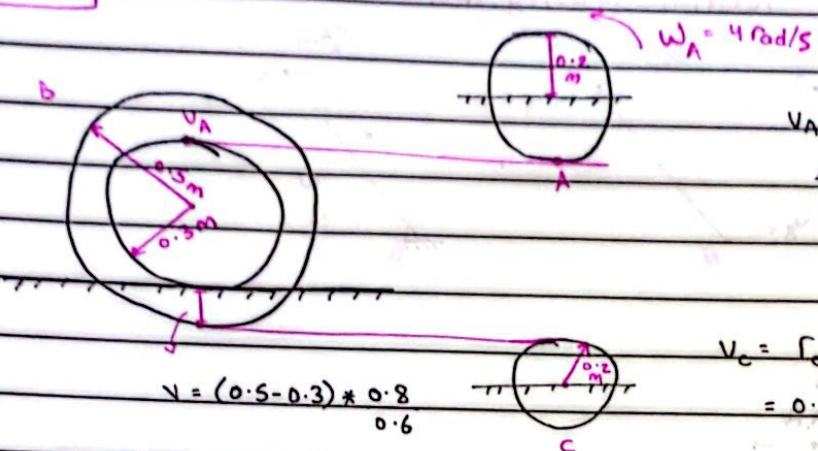 ω_A = 4 rad/s
0.2
m
B
V_A
V_A
0.5 m
0.3 m
A
V_C = r_c
0.2
m
V = (0.5-0.3) * 0.8
0.6
= 0.
C